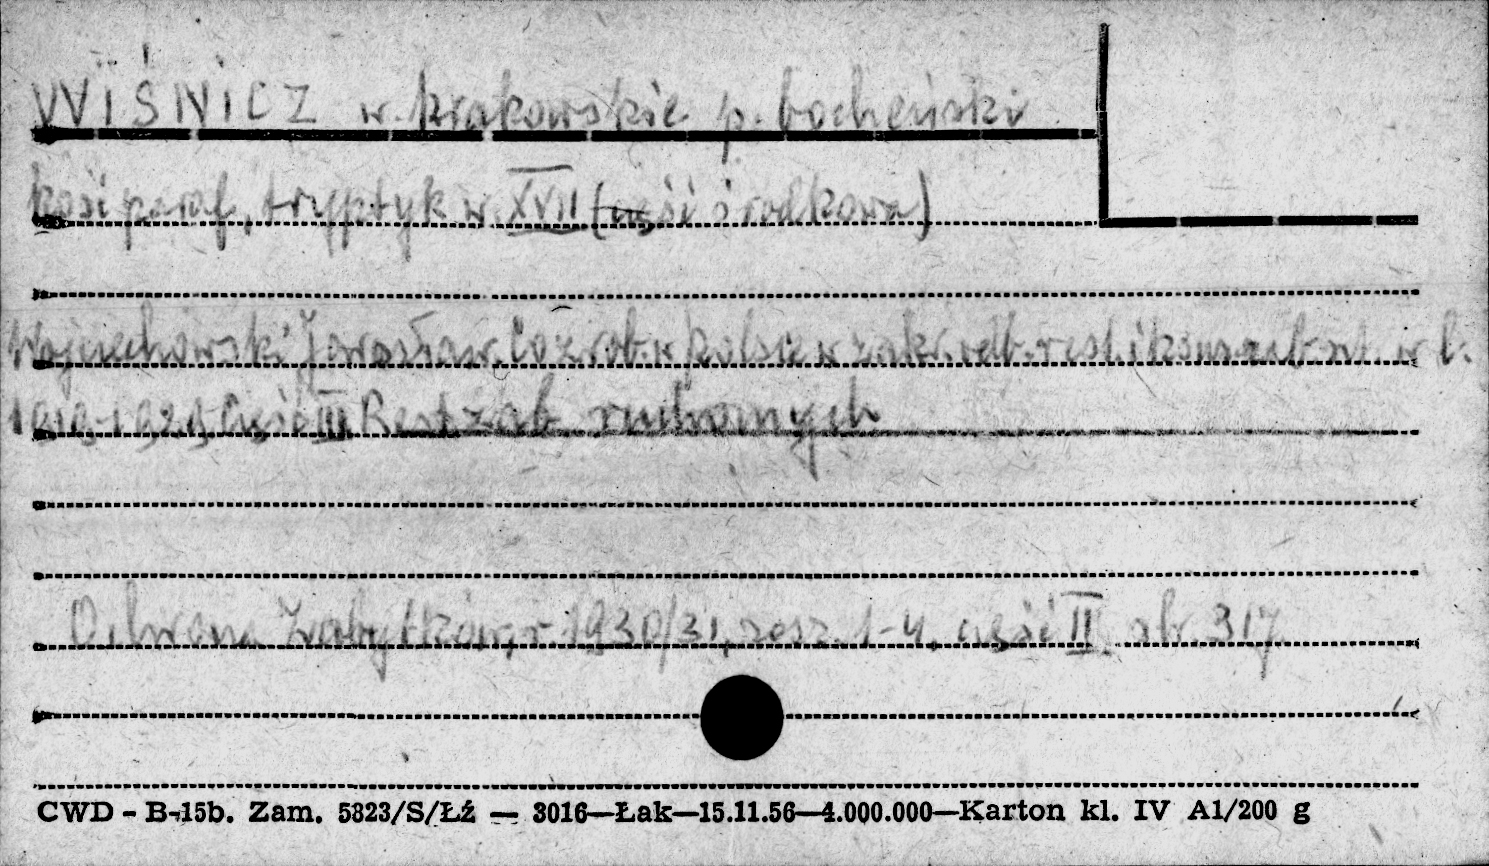 WIŚNICZ w. krakowskie p. bocheński
kość paraf, tryptyk w. XVII (część środkowa)
Wojciechowski Jarosław. Co zrob. w Polsce w zakr. odb. rest. i konserw. zabyt. w l.
1919-1929 Część III Rest zab ruchomych
Ochrona Zabytków, r. 1930/31, zesz. 1-4, część II str. 317
CWD - B-15b. Zam. 5823/S/Łź — 3016—Łak—15.11.56—4.000.000—Karton kl. IV A1/200 g